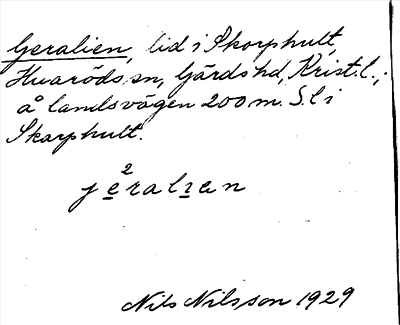 Geralien, lid i Skorphult,
Huaröds sn, Gärds hd, Krist. l.;
å landsvägen 200 m. S. l i
Skarphult.
2
jeralıen
Nils Nilsson 1929